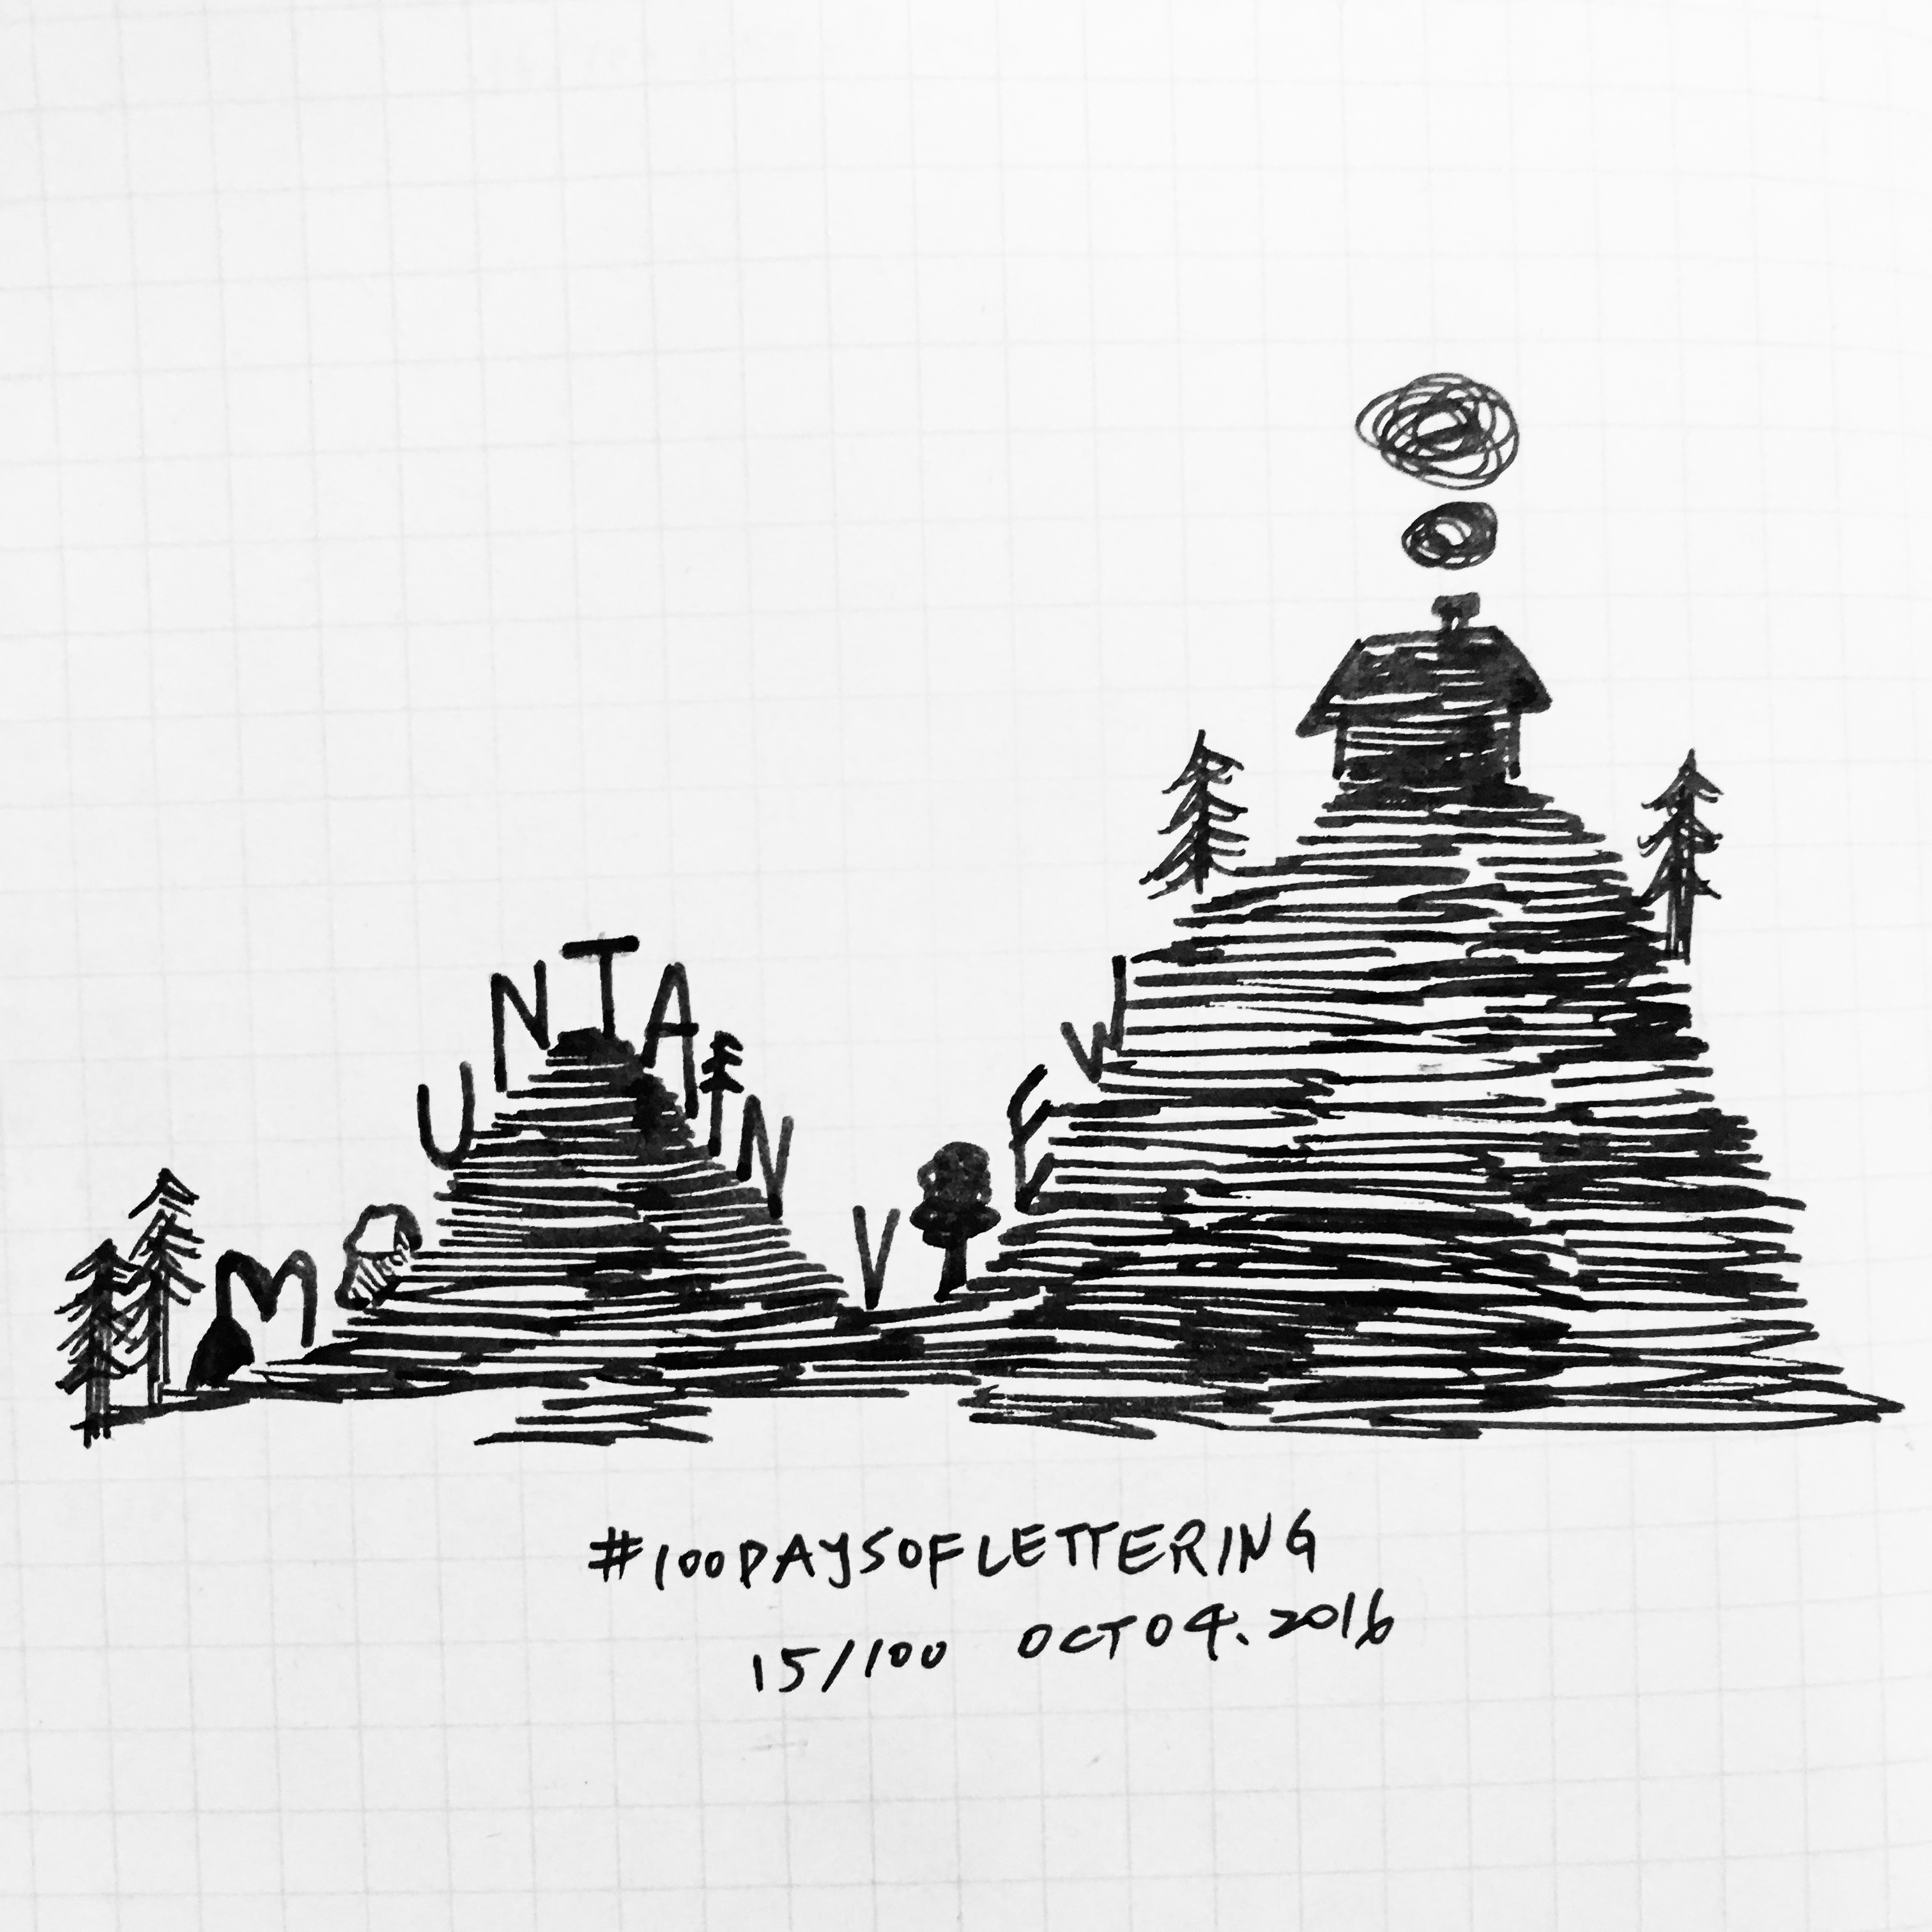 MOUNTAIN VIEW
#100DAYSOFLETTERING
15/100 OCT 04. 2016